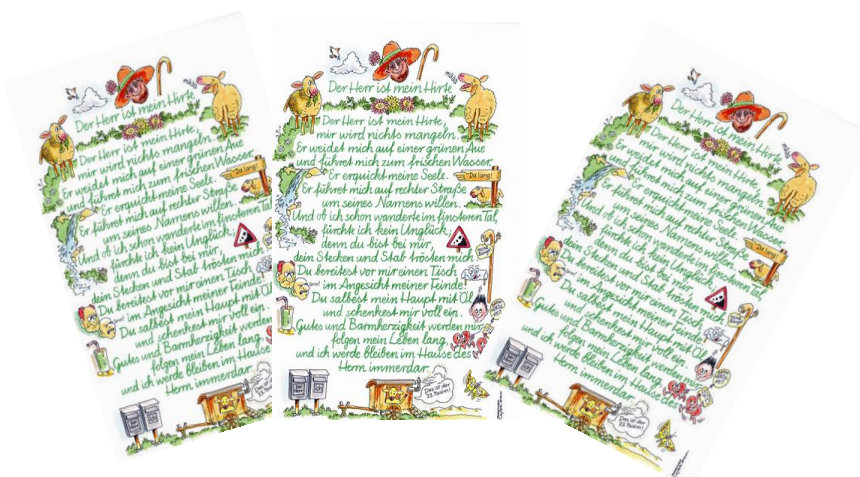 Der Herr ist mein Hirte
Der Herr ist mein Hirte,
mir wird nichts mangeln.
Er weidet mich auf einer grünen Aue
und führet mich zum frischen Wasser.
Er erquicket meine Seele.
Er führet mich auf rechter Straße
um seines Namens willen.
Da lang!
Und ob ich schon wanderte im finsteren
fürchte ich kein Unglück;
denn du bist bei mir,
dein Stecken und Stab trösten mich
Du bereitest vor mir einen Tisch
im Angesicht meiner Feinde
Du salbest mein Haupt mit Öl
und schenkest mir voll ein.
Gutes und Barmherzigkeit werden
folgen mein Leben lang,
und ich werde bleiben im Hause
Herrn immerdar.
Das ist der
23. Psalm!
Der Herr ist mein Hirte
Der Herr ist mein Hirte,
mir wird nichts mangeln.
Er weidet mich auf einer grünen Aue
und führet mich zum frischen Wasser.
Er erquicket meine Seele.
Da lang!
Er führet mich auf rechter Straße
um seines Namens willen.
Und ob ich schon wanderte im finsteren Tal,
fürchte ich kein Unglück;
denn du bist bei mir,
dein Stecken und Stab trösten mich.
Du bereitest vor mir einen Tisch
im Angesicht meiner Feinde.
Du salbest mein Haupt mit Öl
und schenkest mir voll ein.
Gutes und Barmherzigkeit werden mir
folgen mein Leben lang,
und ich werde bleiben im Hause des
Herrn immerdar.
Das ist der
23. Psalm!
Der Herr ist mein Hirte
Der Herr ist mein Hirte,
mir wird nichts mangeln.
Er weidet mich auf einer grünen Aue
und führet mich zum frischen Wasser.
Er erquicket meine Seele.
Da lang!
Er führet mich auf rechter Straße
um seines Namens willen.
Und ob ich schon wanderte im finsteren Tal,
fürchte ich kein Unglück;
denn du bist bei mir,
dein Stecken und Stab trösten mich.
Du bereitest vor mir einen Tisch
im Angesicht meiner Feinde.
Du salbest mein Haupt mit Öl
und schenkest mir voll ein.
Gutes und Barmherzigkeit werden mir
folgen mein Leben lang,
und ich werde bleiben im Hause des
Herrn immerdar.
Das ist der
23. Psalm!